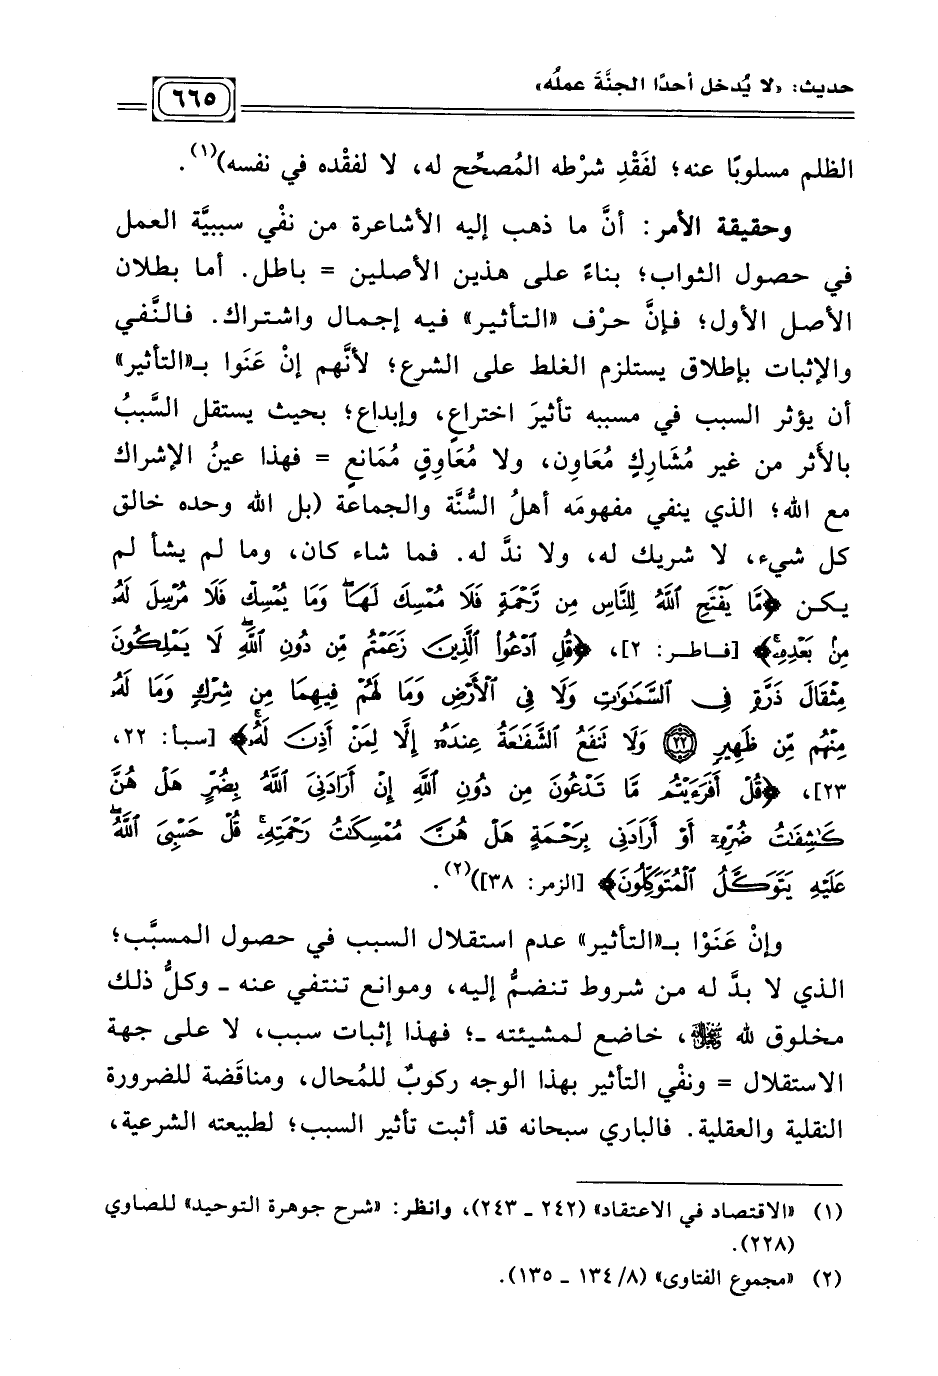 حديث: «لا يُدخل أحدًا الجنَّةَ عملُه»
٦٦٥
الظلم مسلوبًا عنه؛ لفَقْدِ شرْطه المُصحِّح له، لا لفقْده في نفسه)(١).
وحقيقة الأمر: أنَّ ما ذهب إليه الأشاعرة من نفْي سببيَّة العمل
في حصول الثواب؛ بناءً على هذين الأصلين = باطل. أما بطلان
الأصل الأول؛ فإنَّ حرْف «التأثير» فيه إجمال واشتراك. فالنَّفي
والإثبات بإطلاق يستلزم الغلط على الشرع؛ لأنَّهم إنْ عَنَوا بـ«التأثير»
أن يؤثر السبب في مسببه تأثيرَ اختراعٍ، وإبداع؛ بحيث يستقل السَّببُ
بالأثر من غير مُشَارِكٍ مُعَاون، ولا مُعَاوِقٍ مُمَانع = فهذا عينُ الإشراك
مع الله؛ الذي ينفي مفهومَه أهلُ السُّنَّة والجماعة (بل الله وحده خالق
كل شيء، لا شريك له، ولا ندَّ له. فما شاء كان، وما لم يشأ لم
يكن ﴿مَّا يَفْتَحِ ٱللَّهُ لِلنَّاسِ مِن رَّحْمَةٍ فَلَا مُمْسِكَ لَهَاۖ وَمَا يُمْسِكْ فَلَا مُرْسِلَ لَهُۥ
مِنۢ بَعْدِهِۦۚ﴾ [فاطر: ٢]، ﴿قُلِ ٱدْعُوا۟ ٱلَّذِينَ زَعَمْتُم مِّن دُونِ ٱللَّهِۖ لَا يَمْلِكُونَ
مِثْقَالَ ذَرَّةٍ فِى ٱلسَّمَٰوَٰتِ وَلَا فِى ٱلْأَرْضِ وَمَا لَهُمْ فِيهِمَا مِن شِرْكٍ وَمَا لَهُۥ
مِنْهُم مِّن ظَهِيرٍ ٢٢ وَلَا تَنفَعُ ٱلشَّفَٰعَةُ عِندَهُۥٓ إِلَّا لِمَنْ أَذِنَ لَهُۥۚ﴾ [سبأ: ٢٢،
٢٣]، ﴿قُلْ أَفَرَءَيْتُم مَّا تَدْعُونَ مِن دُونِ ٱللَّهِ إِنْ أَرَادَنِىَ ٱللَّهُ بِضُرٍّ هَلْ هُنَّ
كَٰشِفَٰتُ ضُرِّهِۦٓ أَوْ أَرَادَنِى بِرَحْمَةٍ هَلْ هُنَّ مُمْسِكَٰتُ رَحْمَتِهِۦۚ قُلْ حَسْبِىَ ٱللَّهُۖ
عَلَيْهِ يَتَوَكَّلُ ٱلْمُتَوَكِّلُونَ﴾ [الزمر: ٣٨])(٢).
وإنْ عَنَوْا بـ«التأثير» عدم استقلال السبب في حصول المسبَّب؛
الذي لا بدَّ له من شروط تنضمُّ إليه، وموانع تنتفي عنه ـ وكلُّ ذلك
مخلوق لله ﷻ، خاضع لمشيئته ـ؛ فهذا إثبات سبب، لا على جهة
الاستقلال = ونفْي التأثير بهذا الوجه ركوبٌ للمُحال، ومناقَضة للضرورة
النقلية والعقلية. فالباري سبحانه قد أثبت تأثير السبب؛ لطبيعته الشرعية،
(١) «الاقتصاد في الاعتقاد» (٢٤٢ ـ ٢٤٣)، وانظر: «شرح جوهرة التوحيد» للصاوي
(٢٢٨).
(٢) «مجموع الفتاوى» (٨/ ١٣٤ ـ ١٣٥).